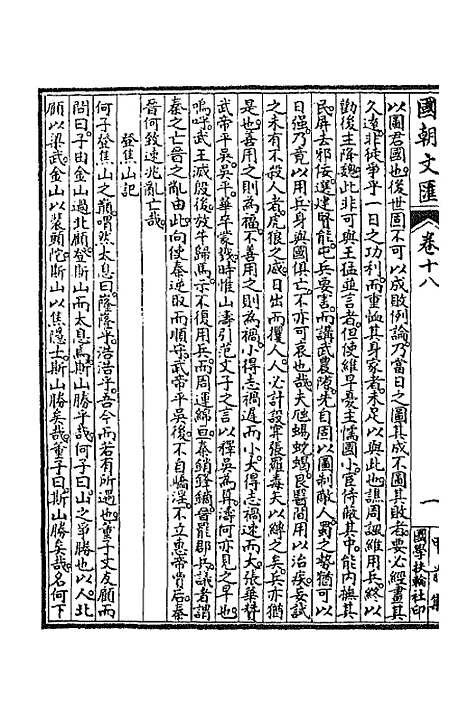 國朝文匯 卷十八 一 甲前集 國學扶輪社印
以圖君國也後世固不可以成敗例論乃當日之圖其成不圖其敗者要必經畫其
久遠非徒爭乎一日之功利而重恤其身家者未足以與此也譙周諷維用兵終以
勸後主降魏此非可與王猛並言者但使維早憂主懦國小宦侍蔽其中能內撫其
民屏去邪佞選建賢能屯兵要害而講武農隙先自固以圖制敵人蜀之勢猶可以
日强乃竟以用兵身與國俱亡不亦可哀也哉夫虺蝎蚊蝎良醫間用以治疾妄試
之未有不殺人者虎狼之威日出而攫人人必計設穽張羅毒矢以縛之矣兵亦猶
是也善用之則為福不善用之則為禍小得志禍遲而小大得志禍速而大張華贊
武帝平吳吳平華卒蒙戮時惟山濤引范文子之言以釋吳為其濤何亦見之早也
嗚呼武王滅殷後放牛歸馬示不復用兵而周運綿亘秦銷鋒鏑晉罷郡兵議者謂
秦之亡晉之亂由此向使秦逆取而順守武帝平吳後不自驕淫不立惠帝賈后秦
晉何致速兆亂亡哉
登焦山記
何子登焦山之巔喟然太息曰蕩蕩乎浩浩乎吾今而若有所遇也童子丈友願而
問曰子由金山過北顧登斯山而太息焉斯山勝乎哉何子曰山之爭勝也以人北
顧以梁武金山以裴頭陀斯山以焦隱士斯山勝矣哉童子曰斯山勝矣哉名何下